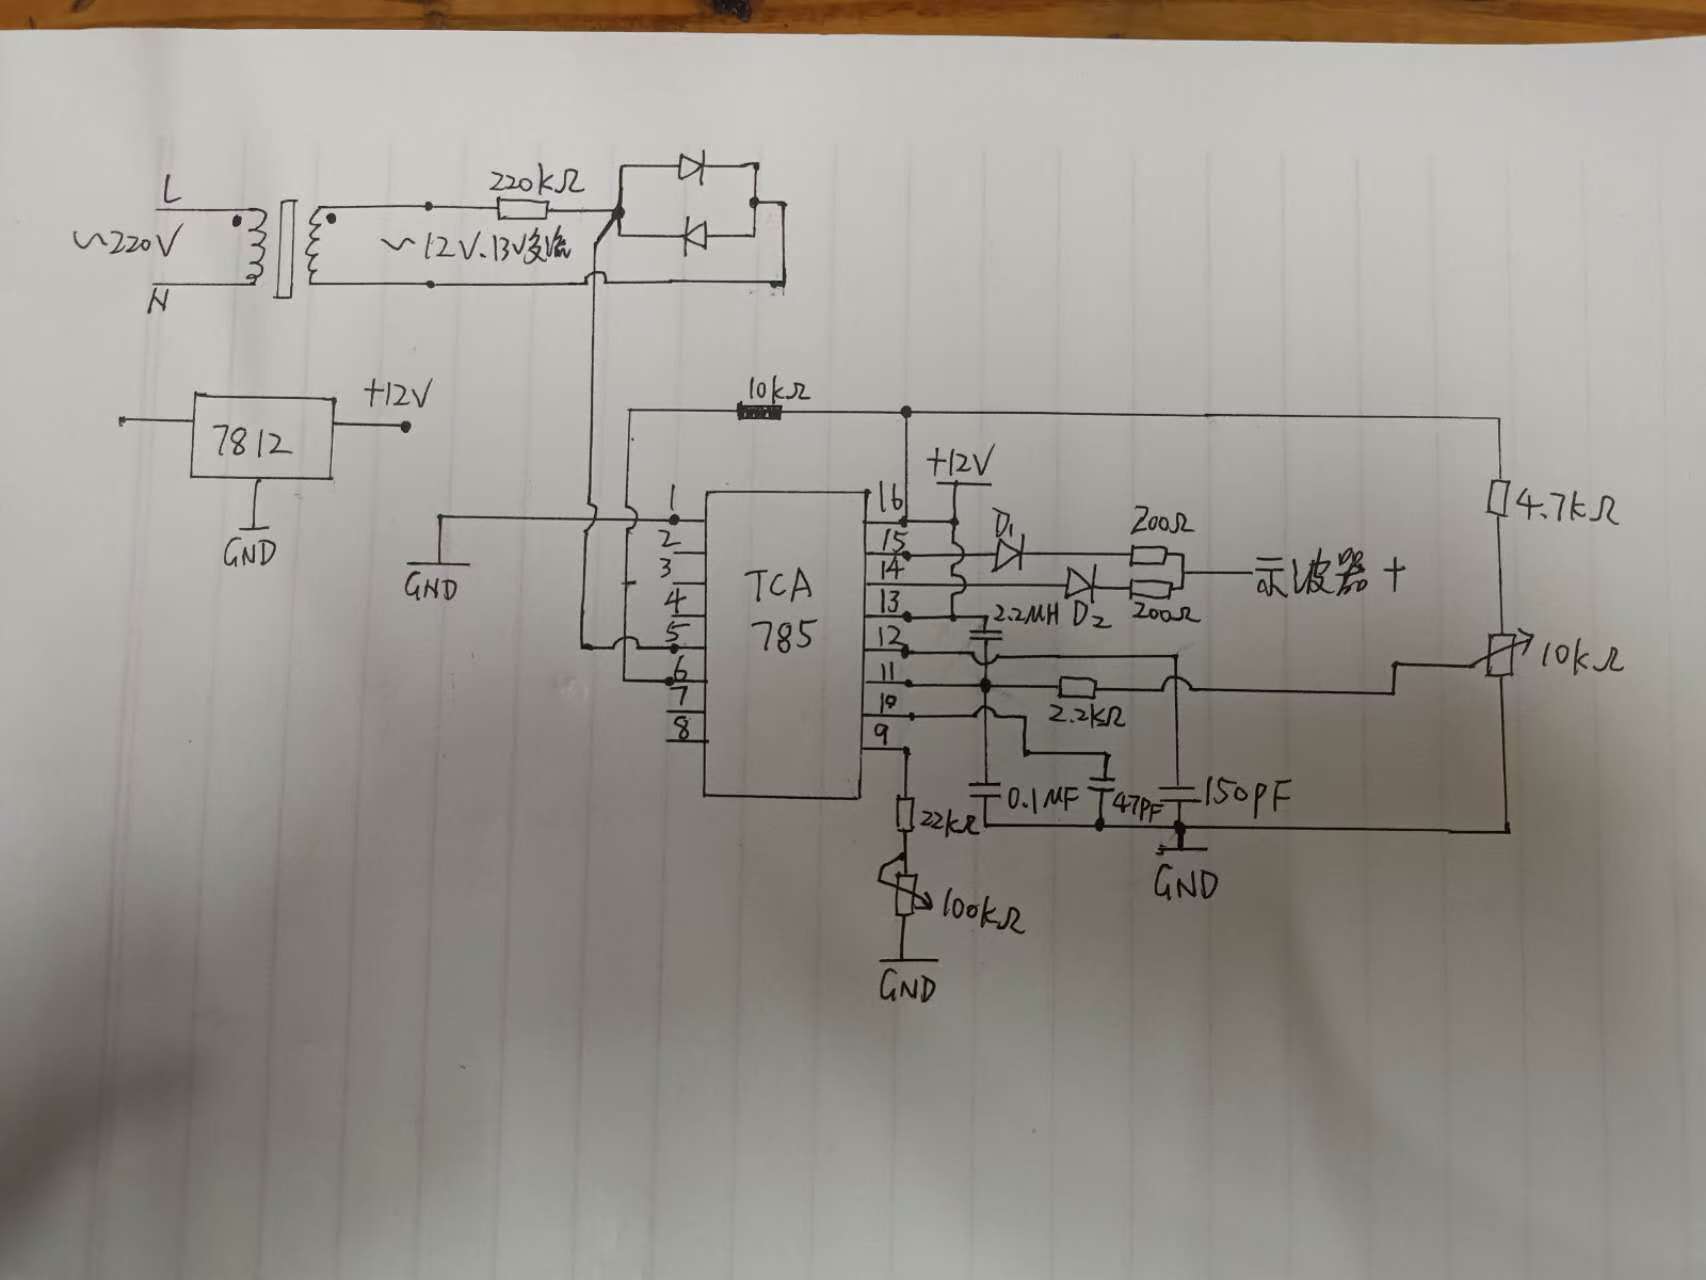 L
220kΩ
~220V
~12V.13V交流
N
10kΩ
+12V
7812
GND
+12V
1
16
4.7kΩ
2
15
D1
200Ω
3
14
示波器 +
GND
TCA
785
4
13
2.2MH
D2
200Ω
5
12
10kΩ
6
11
7
10
2.2kΩ
8
9
0.1MF
47PF
150PF
22kΩ
GND
100kΩ
GND